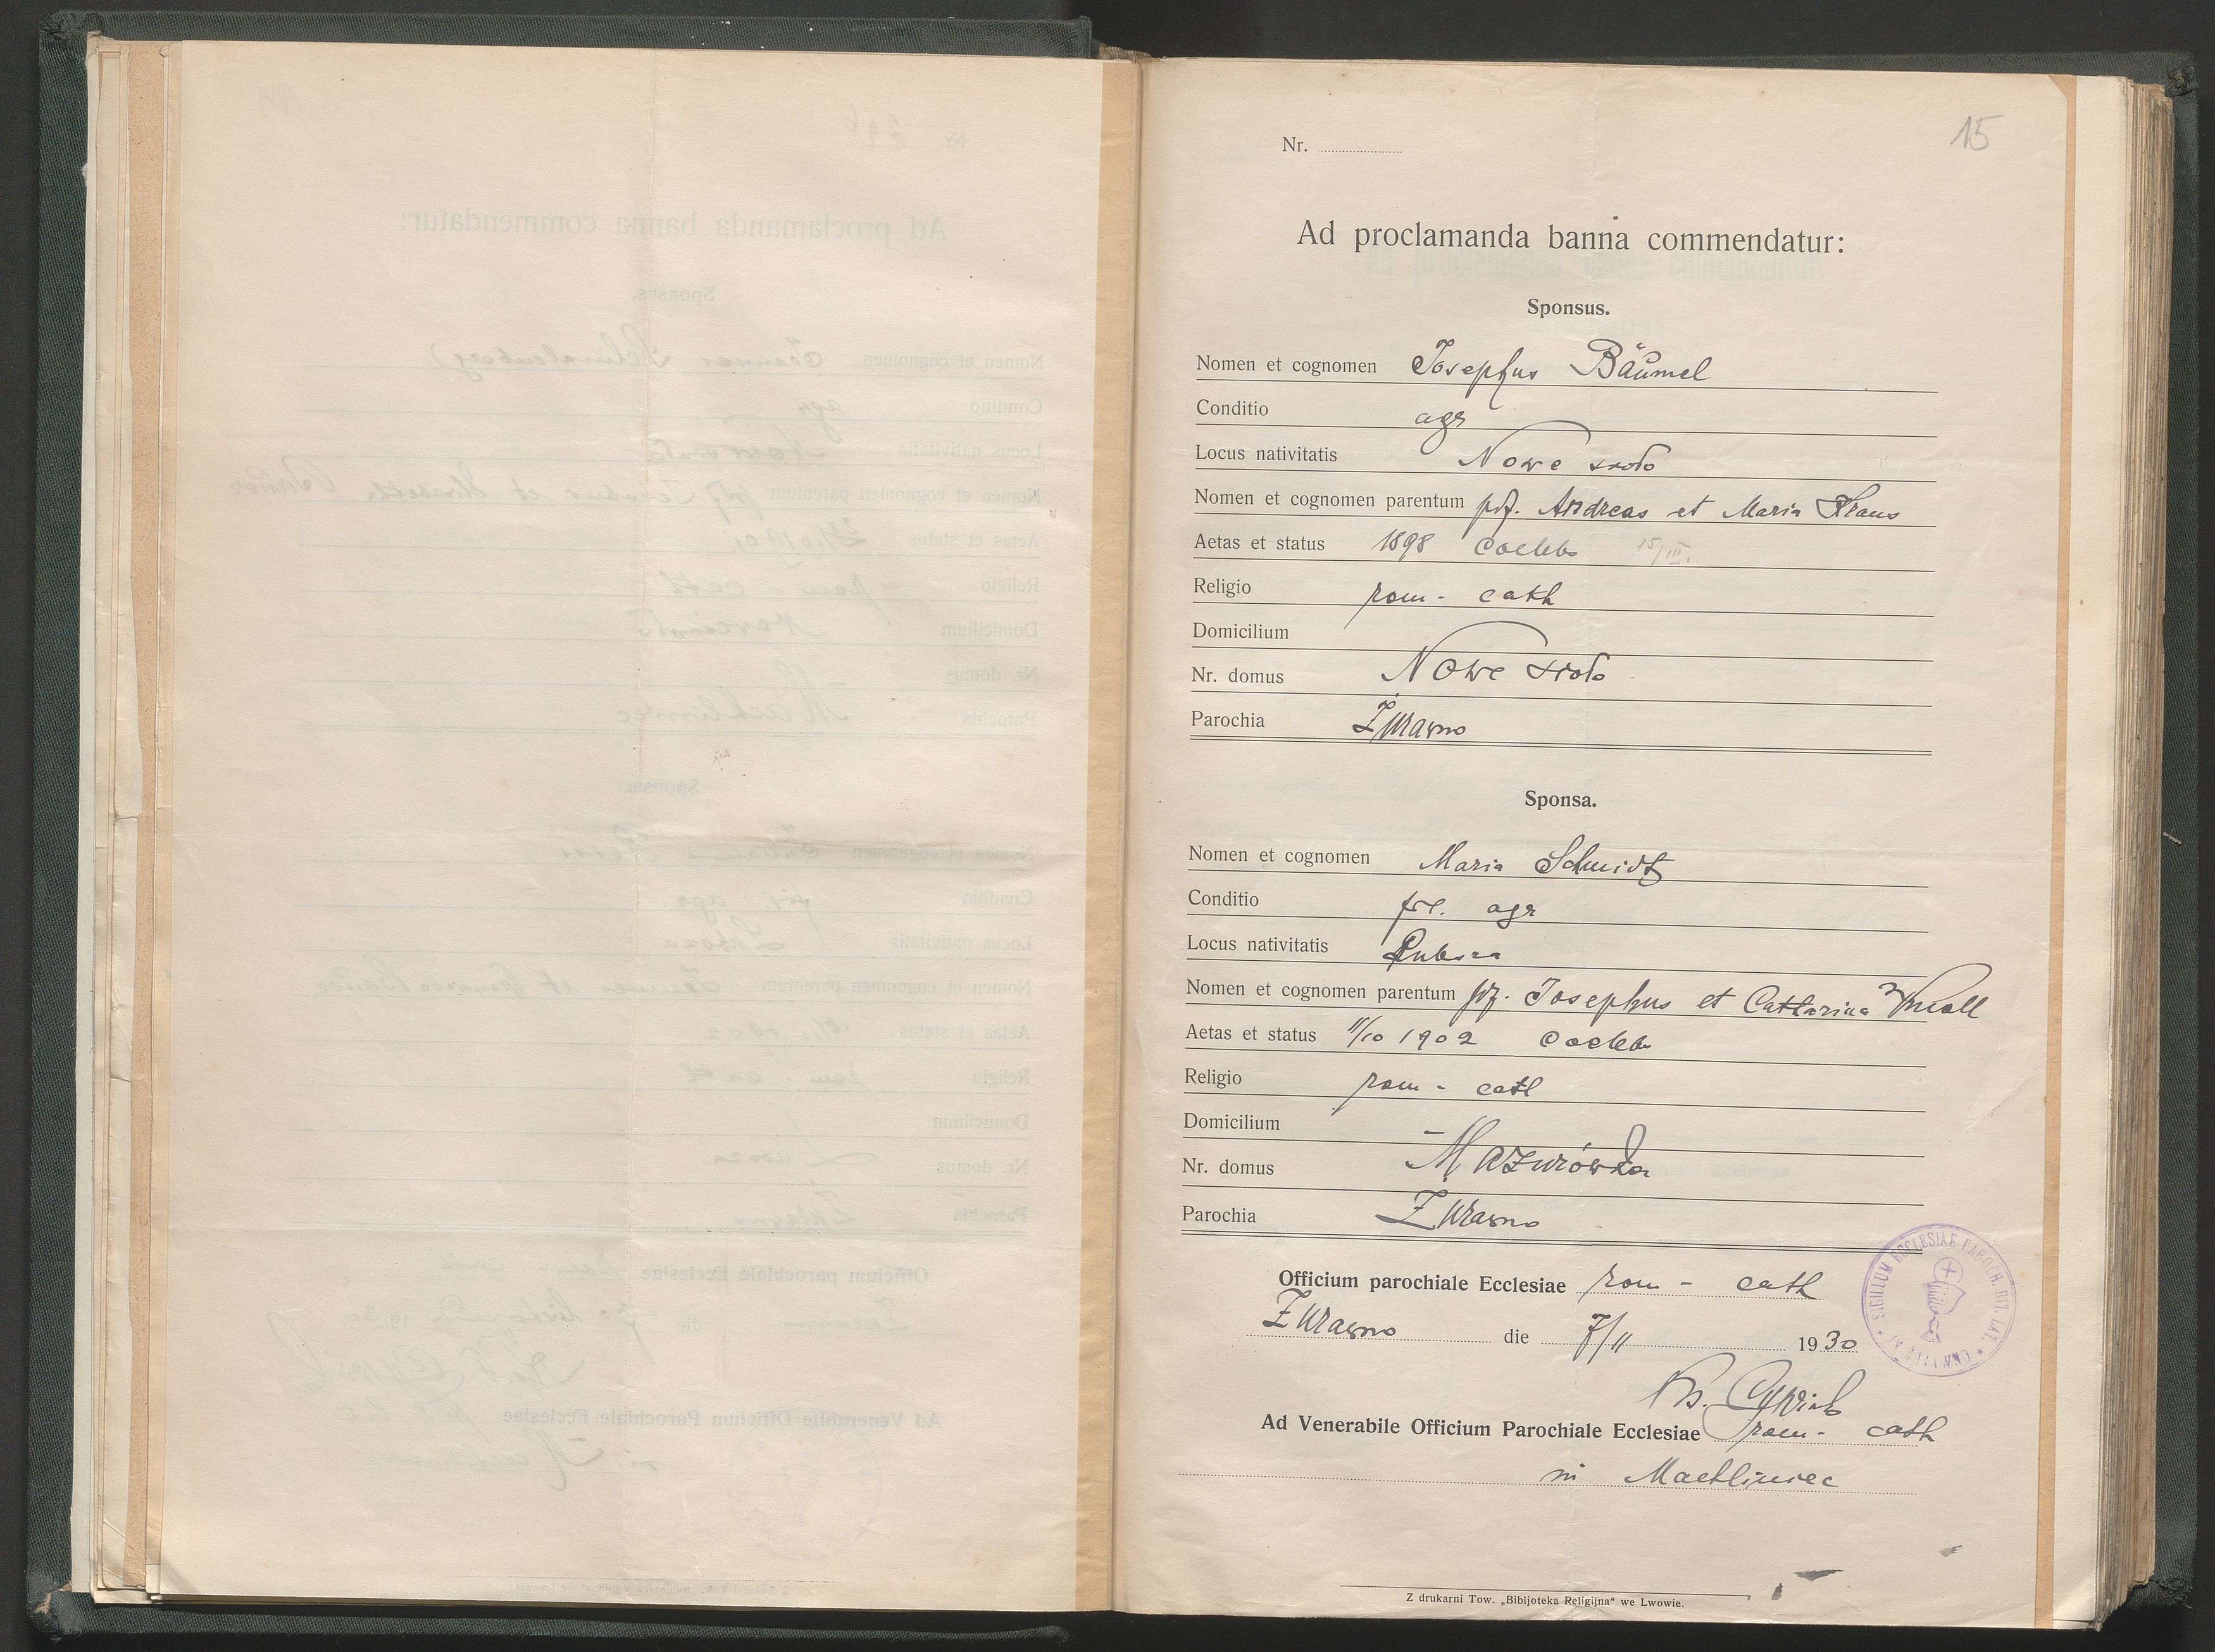 15
Nr.
Ad proclamanda banna commendatur:
Sponsus.
Nomen et cognomen Josephus Bäumel
Conditio agr
Locus nativitatis Nowe sioło
Nomen et cognomen parentum Andreas et Maria Kraus
Aetas et status 1898 coelebs 15/III.
Religio rom- cath
Domicilium
Nr. domus Nowe sioło
Parochia Żurawno
Sponsa.
Nomen et cognomen Maria Schmidt
Conditio agr
Locus nativitatis
Nomen et cognomen parentum Josephus et Catharina
Aetas et status 11/10 1902 coelebs
Religio rom- cath
Domicilium
Nr. domus Mazurówka
Parochia Żurawno
SIGILLUM ECCLESIAE PAROCH. RIT. LAT.
Officium parochiale Ecclesiae rom- cath
Żurawno die 7/11 1930
Ad Venerabile Officium Parochiale Ecclesiae rom- cath
in Machliniec
Z drukarni Tow. „Bibljoteka Religijna“ we Lwowie.